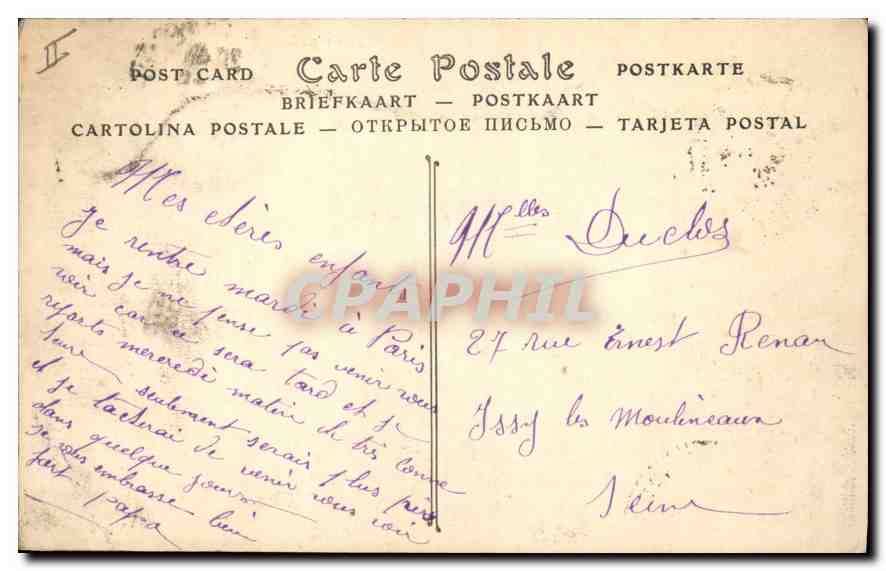 II
POST CARD Carte Postale POSTKARTE
BRIEFKAART — POSTKAART
CARTOLINA POSTALE — ОТКРЫТОЕ ПИСЬМО — TARJETA POSTAL
Mes chères enfants
Je rentre mardi à Paris
mais je ne pense pas venir vous
voir car ce sera tard et je
reparts mercredi matin de très bonne
heure seulement serais plus près
et je tacherai de venir vous voir
dans quelque jours
je vous embrasse bien
fort papa
Mlles Duclos
27 rue Ernest Renan
Issy les Moulineaux
Seine
CPAPHIL